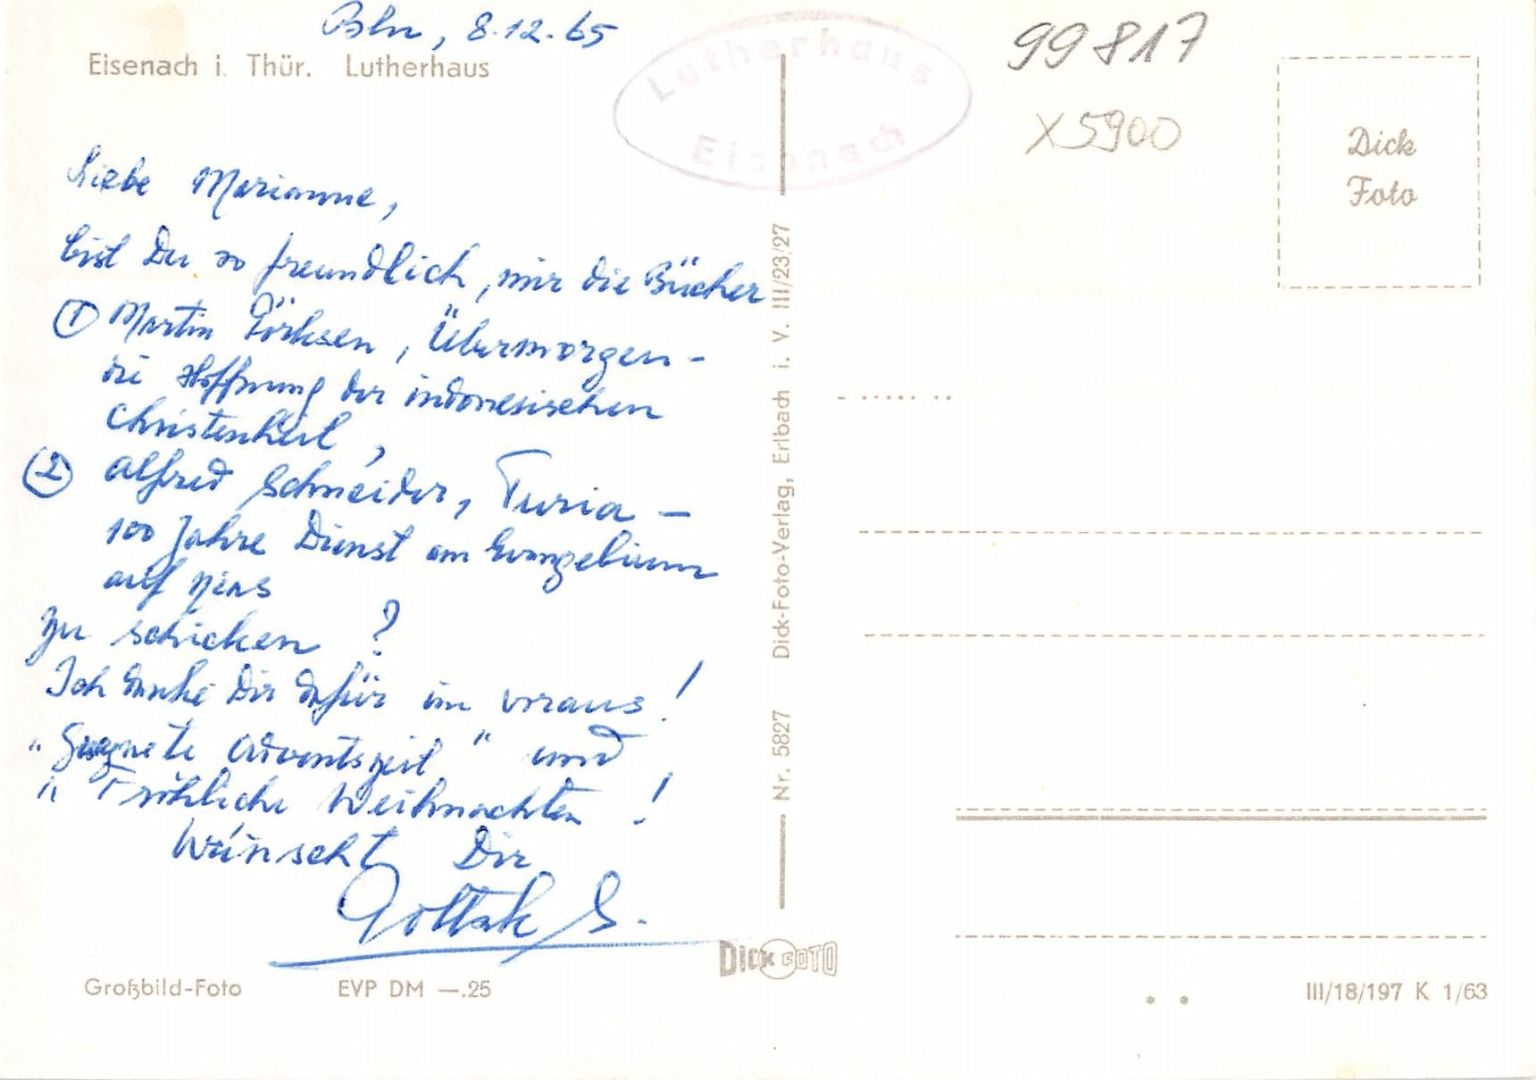 Bln, 8.12.65
Eisenach i. Thür. Lutherhaus
Lutherhaus
Eisenach
99817
X5900
Dick
Foto
Liebe Marianne,
bist Du so freundlich, mir die Bücher
① Martin Pörksen, Übermorgen -
die Hoffnung der indonesischen
Christenheit,
② Alfred Schneider, Turia -
100 Jahre Dienst am Evangelium
auf Nias
zu schicken ?
Ich danke Dir dafür im voraus !
"Gesegnete Adventszeit" und
"Fröhliche Weihnachten !
Wünscht Dir
S.
Nr. 5827 Dick-Foto-Verlag, Erlbach i. V. III/23/27
DICK FOTO
Großbild-Foto EVP DM —.25
III/18/197 K 1/63